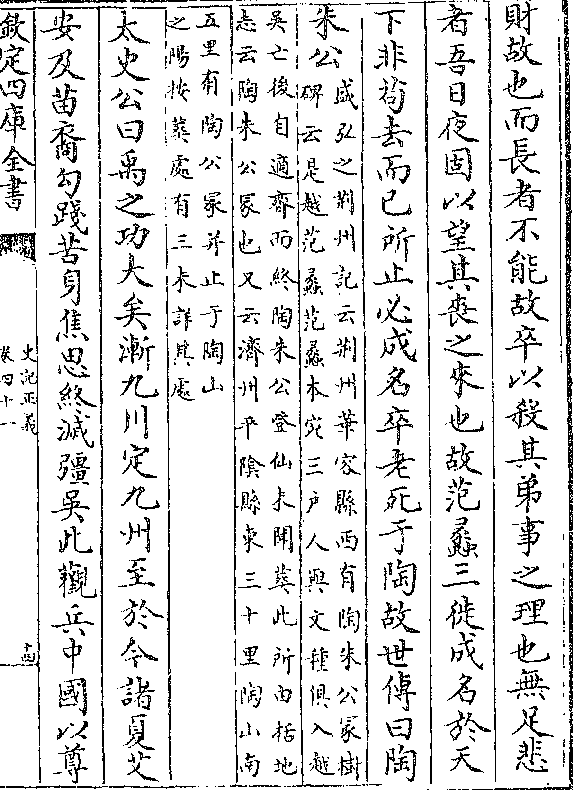 財故也而長者不能故卒以殺其弟事之理也無足悲
者吾日夜固以望其喪之來也故范蠡三徙成名於天
下非苟去而已所止必成名卒老死于陶故世傳曰陶
朱公
盛弘之荆州記云荆州華容縣西有陶朱公冢樹
碑云是越范蠡范蠡本宛三户人與文種俱入越
吳亡後自適齊而終陶朱公登仙未聞葬此所由括地
志云陶朱公冢也又云濟州平陰縣東三十里陶山南
五里有陶公冢并止于陶山
之陽按葬處有二未詳其處
太史公曰禹之功大矣漸九川定九州至於今諸夏艾
安及苗裔勾踐苦身焦思終滅彊吳北觀兵中國以尊
欽定四庫全書
史記正義
卷四十一
十四